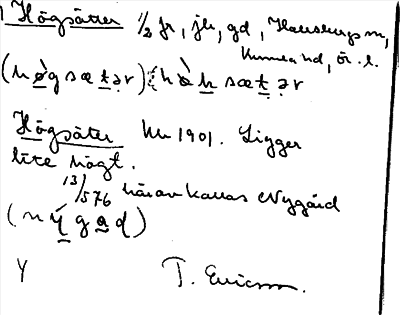 Högsäter 1/2 fr, jh, gd, Hallebergs m,
Kumla hd, ör. l.
(hø̀gsætər) : hø̀h sætər
Högsäter Hu 1901. Ligger
lite högt.
13/576 härav kallas Nygård
(nýgad)
T. Ericson.